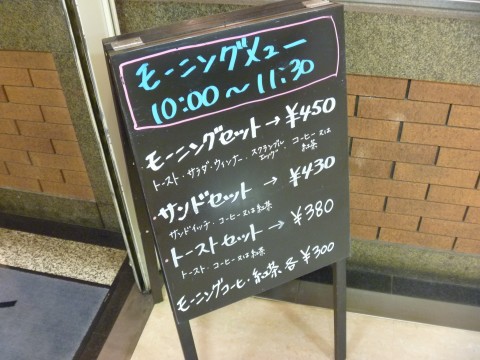 モーニングメニュー
10:00～11:30
モーニングセット→¥450
トースト・サラダ・ウィンナー・スクランブルエッグ・コーヒー又は紅茶
サンドセット→¥430
サンドイッチ・コーヒー又は紅茶
トーストセット→¥380
トースト・コーヒー又は紅茶
モーニングコーヒ・紅茶 各¥300